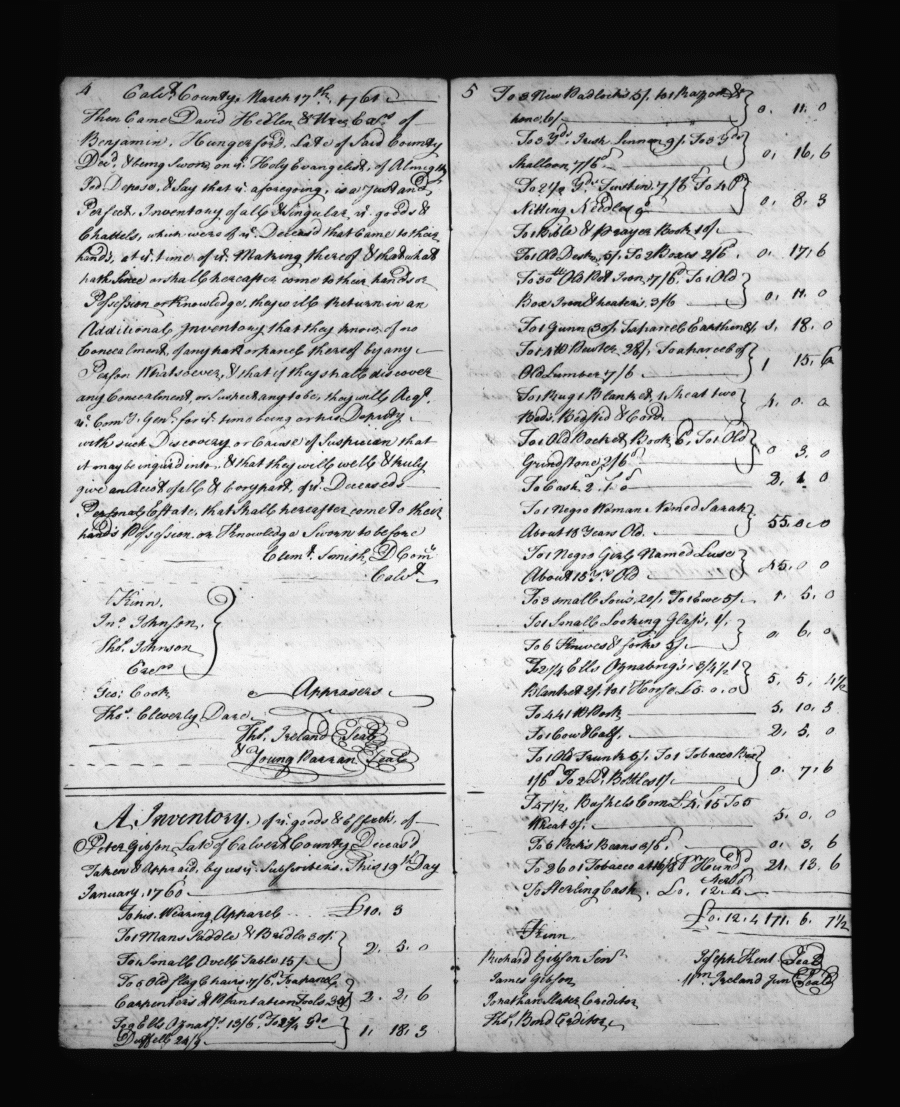 4
Calvt. County, March 17th. 1761
Then Came David Hellen & Exrs. of
Benjamin Hungerford, Late of Said County
Decd. & being Sworn on ye. Holy Evangelist, of Almighty
God Depose, & Say that ye. aforegoing, is a Just and
Perfect, Inventory of all & Singular, ye. goods &
Chattels, which were of ye. Deceasd that Came to their
hands, at ye. time of ye. Making thereof & that what
hath Since or shall hereafter come to their hands or
Possession or Knowledge, they will Return in an
Additional Inventory that they know, of no
Concealment, of any part or parcel thereof by any
Person Whatsoever, & that if they shall discover
any Concealment, or Suspect any to be, they will Acqt.
ye. Comy. Genl. for ye. time being or his Deputy
with such Discovery or Cause of Suspician that
it may be inquird into, & that they will well & truly
give an Accot. of all & Every part, of ye. Deceaseds
Personal Estate, that shall hereafter come to their
hands Possession or Knowledge Sworn to before
Clemt. Smith, D Comy
Calvt.
Kinn.
Jno. Johnson.
Thos. Johnson
Geo: Cook. Apprasers
Thos. Cleverly Dare.
Thos. Ireland Seal
& Young Parran Seal
A Inventory, of ye. goods & Effects, of
Peter Gibson, Late of Calvert County, Deceasd
Taken & Appraisd. by us ye. Subscribers, This 19th Day
January, 1760
To his Wearing Apparel £10. 3
To 1 Mans Saddle & Bridle 30/.
To 1 Small Ovell Table 15/ 2. 5. 0
To 5 Old flag Chairs 7/6. To a parcel
Carpenters & Plantation Tools, 2. 2. 6
To 9 Ells Oznabgs. 13/6. To 2 3/4 Yds
Duffell 24/9 1. 18. 3
5
To 3 New Padlocks 5/. to 1 Razor &
hone 6/ 0. 11. 0
To 3 Yds. Irish Linnen 9/. To 3 Yds
Shalloon, 7/6 0. 16, 6
To 2 1/2 Yds 7/6 To 4
Nitting Needles, 9d. 0. 8. 3
To 1 Bible & Prayer Book
To 1 Old Desk, 5/. To 2 Boxes 2/6 0. 17. 6
To 30 lb Old Pot Iron, 7/6. To 1 Old
Box Iron & heaters, 3/6 0. 11. 0
To 1 Gunn 30/. To a parcel Earthen 8/ 1. 18. 0
To 14 lb Pewter, 28/. To a parcel of
Old Lumber 7/6 1 15. 6
To 1 Rug 1 Blanket, 1 Sheat two
Beds. Bedstid & Cord. 4. 0. 0
To 1 Old Pocket Book, 6d, To 1 Old
Grindstone, 2/6 0 3. 0
To Cash 2. 1. 0 2, 1. 0
To 1 Negro Woman Named Sarah
About 18 Years Old. 55. 0. 0
To 1 Negro Girl Named Luse
About 15 Yrs Old 45. 0 0
To 3 small Sows, 20/. To 1 Ewe 5/. 1. 5. 0
To 1 Small Looking Glass, 1/.
To 6 Knives & forks 5/. 0. 6. 0
To 2 1/4 Ells Oznabrigs, 3/4 1/2. 1
Blanket 2/. to 1 Horse £5. 0. 0 5. 5. 4 1/2
To 441 lb Pork 5. 10. 3
To 1 Cow & Calf. 2. 5. 0
To 1 Old Trunk 5/. To 1 Tobacco Box
1/6 To 2 Do. Bottles 1/. 0. 7. 6
To 47 1/2, Baskets Corn £4. 15 To 5
Wheat 5/. 5. 0. 0
To 5 Pecks Beans 3/6. 0. 3, 6
To 2601 Tobacco at 16/8 Pr Hundd 21. 13. 6
To Sterling Cash £0. 12. 4 Sterlg
£0. 12. 4 171. 6. 7 1/2
Kinn
Richard Gibson Senr. Joseph Kent Seal
James Gibson Wm. Ireland Junr Seal
Jonathan Slater Creditor
Thos. Bond Creditor